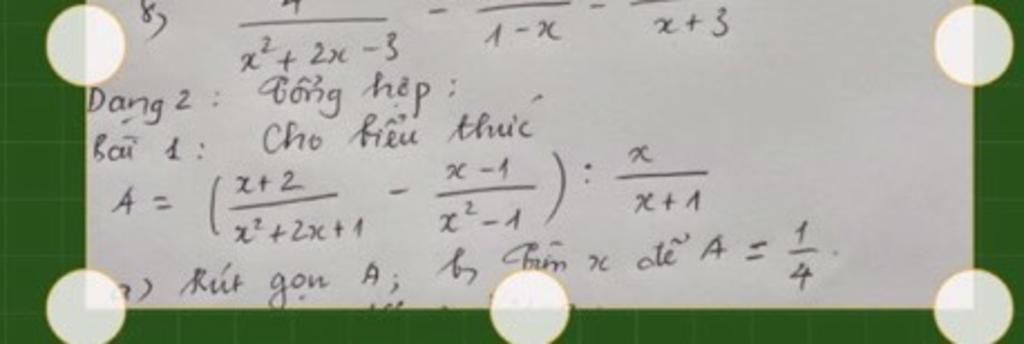 8) 4/(x²+2x-3) - /(1-x) - /(x+3)
Dạng 2: Tổng hợp:
Bài 1: Cho biểu thức
A = ((x+2)/(x²+2x+1) - (x-1)/(x²-1)) : x/(x+1)
a) Rút gọn A; b, Tìm x để A = 1/4.